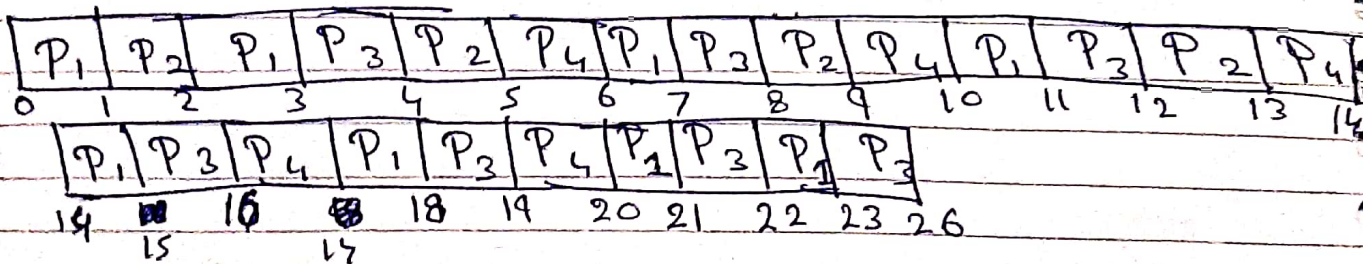 P₁ P₂ P₁ P₃ P₂ P₄ P₁ P₃ P₂ P₄ P₁ P₃ P₂ P₄
0 1 2 3 4 5 6 7 8 9 10 11 12 13 14
P₁ P₃ P₄ P₁ P₃ P₄ P₁ P₃ P₁ P₃
14 16 18 19 20 21 22 23 26
15 17